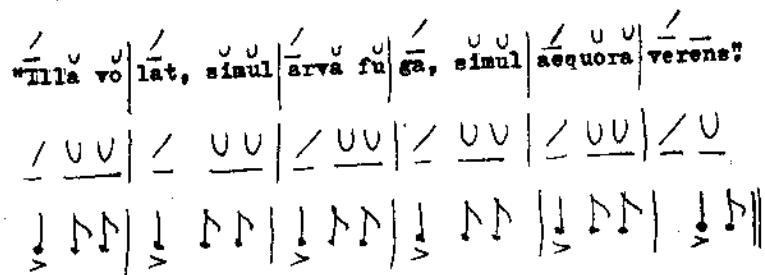 "Illa vo|lat, simul|arva fu|ga, simul|aequora|verens".